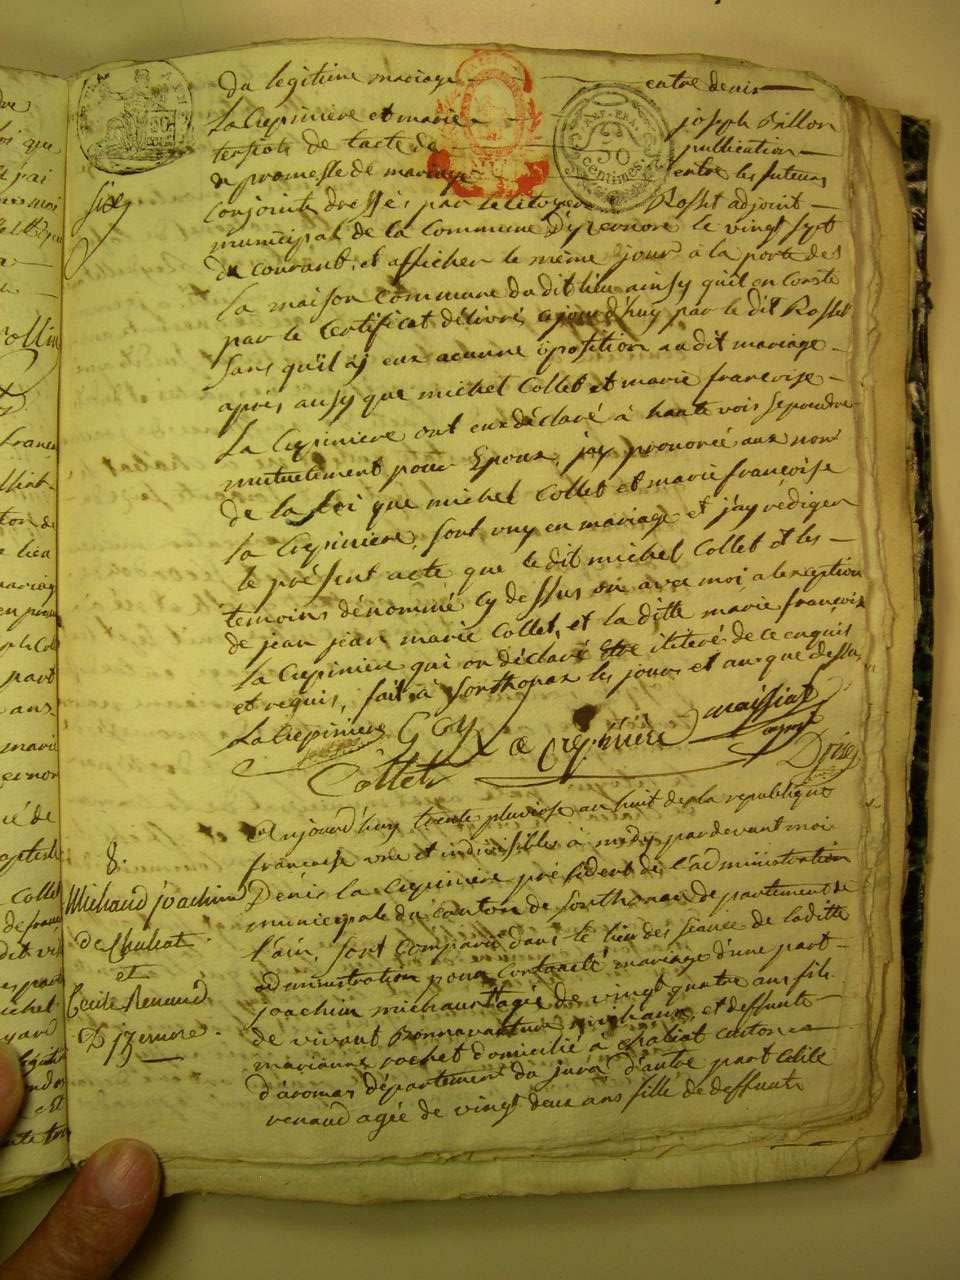 du legitime mariage entre denis
La Crepiniere et marie joseph Billon
3° de l'acte de publication
de promesse de mariage entre les futurs
Six
conjoints dressés par le citoyen Roset adjoint
municipal de la Commune d'yzernore le vingt sept
du courant, et afficher le même jour à la porte de
la maison commune du dit lieu ainsy qu'il en conste
par le Certificat délivré ajourd'huy par le dit Roset
sans qu'il aj eux aucunne oposition audit mariage
après ausy que michel Collet et marie francoise
La Crepiniere ont eu déclaré à haute vois se prendre
mutuelement pour Epoux, jay prononcé aux nom
de la Loi que michel Collet et marie francoise
la Crepiniere, sont uny en mariage et j'ay rédiger
le présent acte que le dit michel Collet et les
temoins dénommé cy dessus avec moi a l'exception
de jean marie Collet, et la ditte marie francoise
la Crepiniere qui on déclaré être iliteré de ce enquis
et requis, fait à Sonthonax les jour et an que dessus
La Crepiniere Goy Crepinière maissiat
Collet
8.
Michaud joachim
De Chaleat
et
Cecile Renaud
D'jzernore.
Aujourd'huy trente pluviose an huit de la republique
francaise une et indivisible à midy pardevant moi
Denis la Crepiniere président de l'administration
municipale du canton de Sonthonax departement de
l'ain, sont comparu dans le lieu des séance de laditte
administration pour contracté mariage d'une part
joachim michaud agé de vingt quatre ans fils
de vivant Bonnavanture michaud, et deffunte
marianne rochet domicilié à chaleat canton
d'aromas département du jura d'autre part Cécile
renaud agée de vingt deux ans fille de deffunt